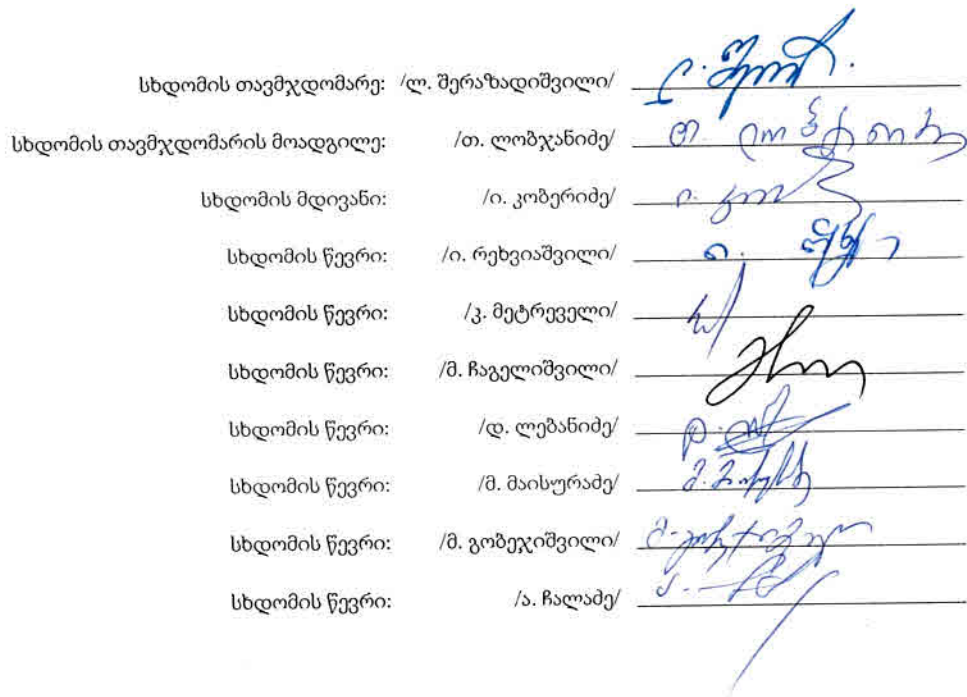 სხდომის თავმჯდომარე: /ლ. შერაზადიშვილი/
სხდომის თავმჯდომარის მოადგილე: /თ. ლობჯანიძე/
სხდომის მდივანი: /ი. კობერიძე/
სხდომის წევრი: /ი. რეხვიაშვილი/
სხდომის წევრი: /კ. მეტრეველი/
სხდომის წევრი: /მ. ჩაგელიშვილი/
სხდომის წევრი: /დ. ლებანიძე/
სხდომის წევრი: /მ. მაისურაძე/
სხდომის წევრი: /მ. გობეჯიშვილი/
სხდომის წევრი: /ა. ჩალაძე/